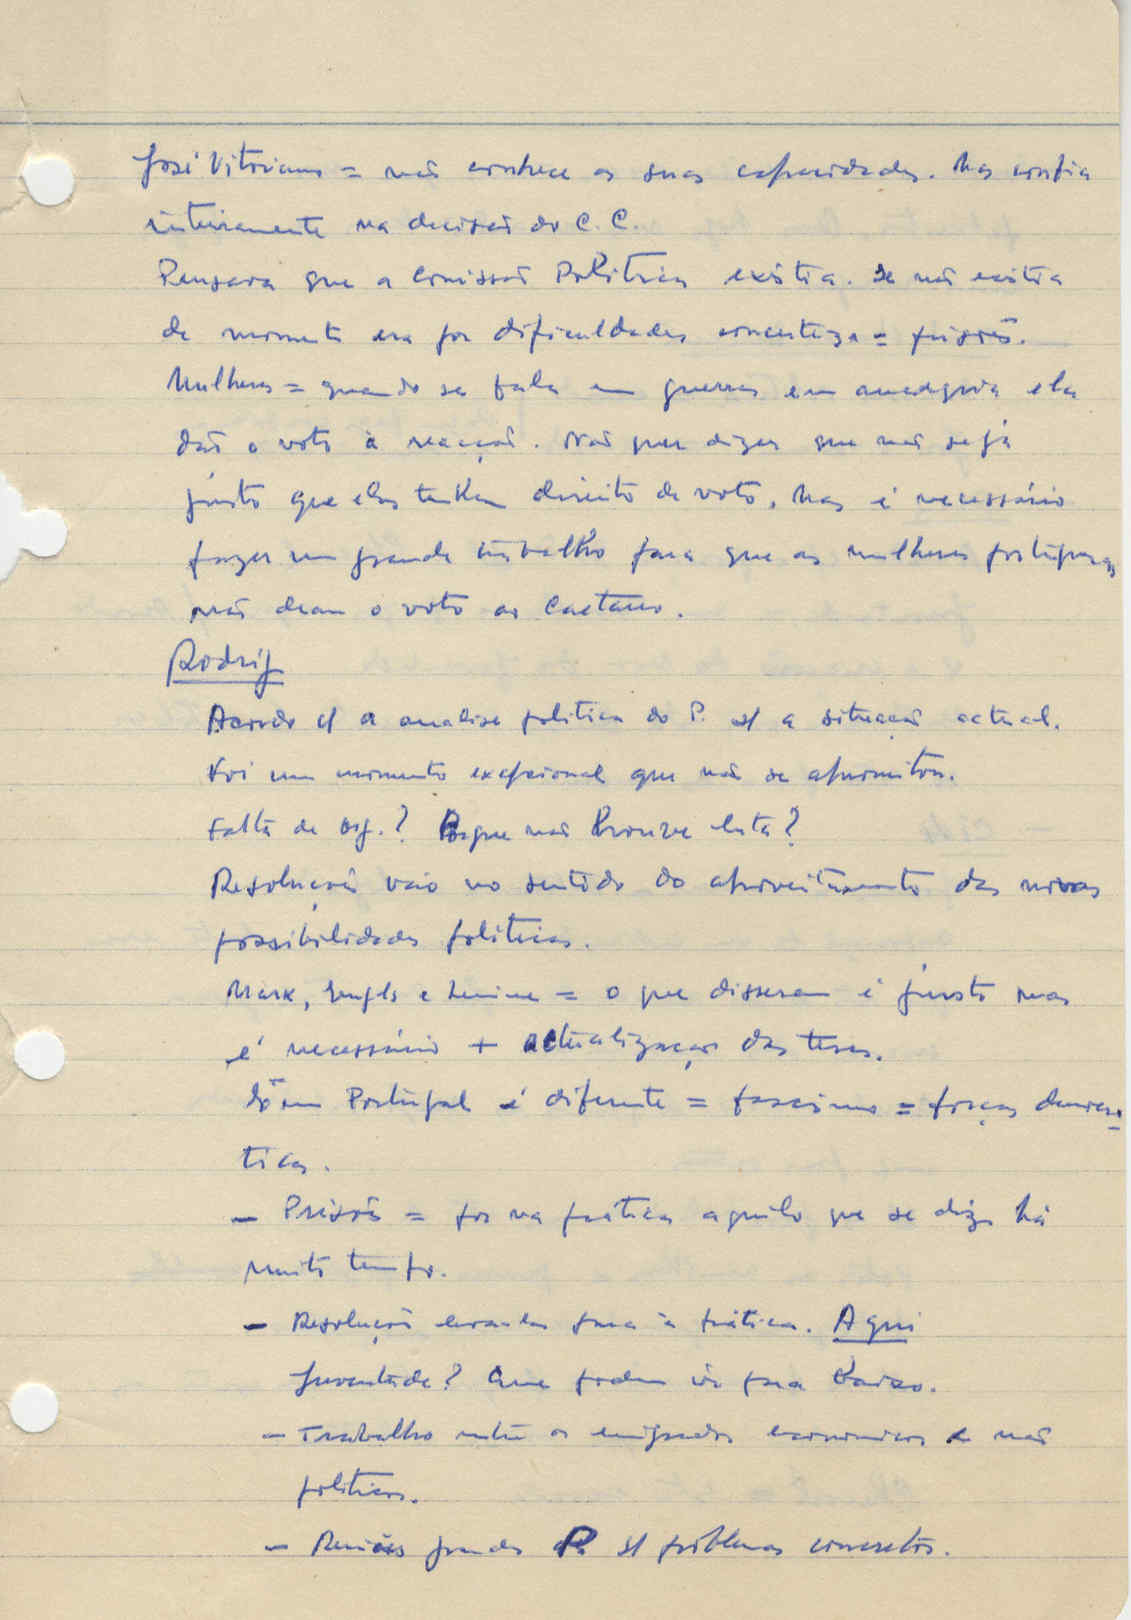 José Vitoriano = não conhece as suas capacidades. Mas confia
inteiramente na decisão do C. C.
Pensava que a Comissão Política existia. Se não existia
de momento era por dificuldades concerteza = prisões.
Mulheres = quando se fala em guerras em anedgova elas
dão o voto à reacção. Não quer dizer que não seja
justo que elas tenham direito de voto, Mas é necessário
fazer um grande trabalho para que as mulheres portuguesas
não deam o voto ao Caetano.
Rodrig
Acordo c/ a analise politica do P. s/ a situação actual.
Foi um momento excepcional que não se aproveitou.
Falta de org.? Porque não houve luta?
Resoluções vão no sentido do aproveitamento das novas
possibilidades politicas.
Marx, Engels e Lenine = o que disseram é justo mas
é necessário + actualização das teses.
Em Portugal é diferente = fascismo = forças democrá-
ticas.
- Prisões = por na prática aquilo que se diz há
muito tempo.
- Resoluções levadas para a prática. Aqui
Juventude? Que podem ir para baixo.
- Trabalho entre os emigrados económicos e não
politicos.
- Reuniões grandes s/ problemas concretos.